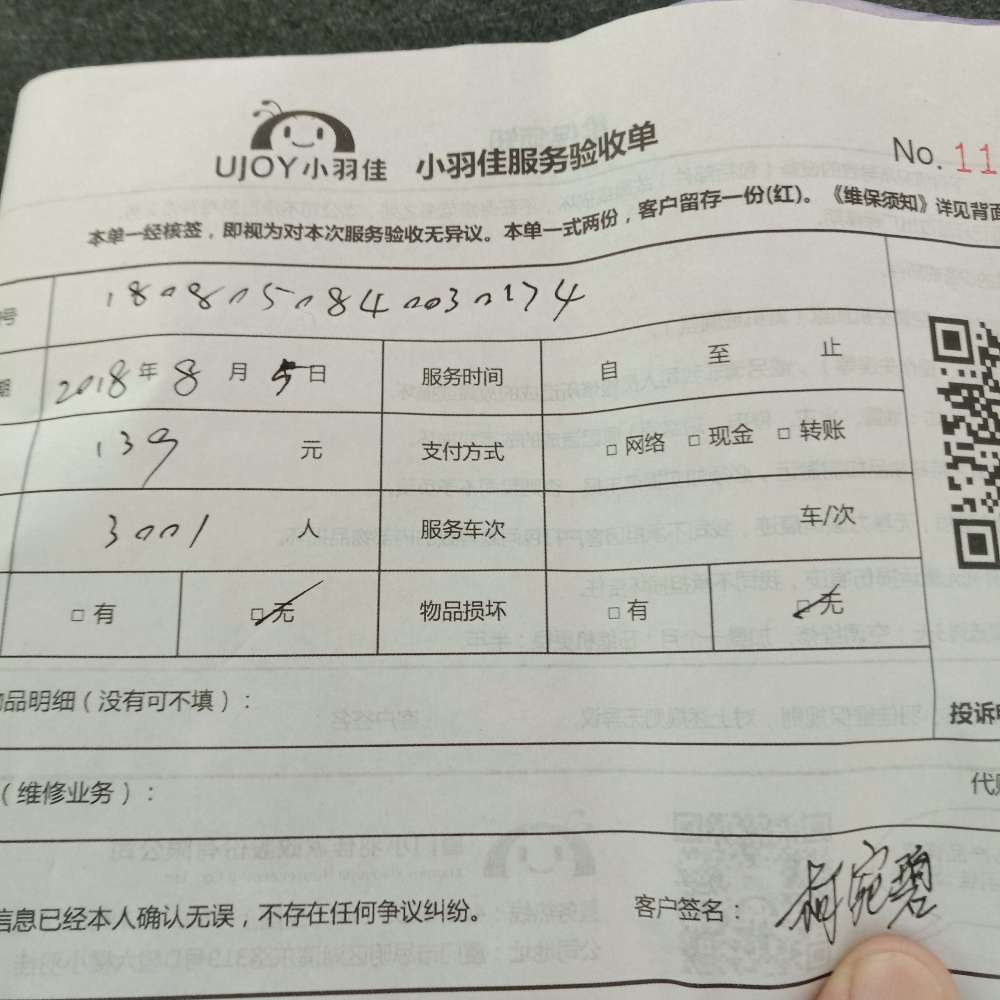 UJOY小羽佳 小羽佳服务验收单 No. 11
本单一经核签，即视为对本次服务验收无异议。本单一式两份，客户留存一份(红)。《维保须知》详见背面
号 1808050840030174
期 2018年8月5日 服务时间 自 至 止
139 元 支付方式 □ 网络 □ 现金 □ 转账
3001 人 服务车次 车/次
□ 有 □ 无 物品损坏 □ 有 □ 无
物品明细（没有可不填）：
投诉电
（维修业务）：
代购
信息已经本人确认无误，不存在任何争议纠纷。 客户签名：柯宛碧